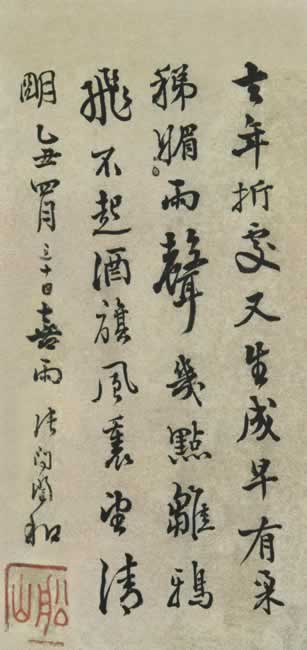 去年折處又生成早有柔
稊媚雨聲幾點雛鴉
飛不起酒旗風裏望清
明 乙丑四月三十日喜雨 張問陶和
船山